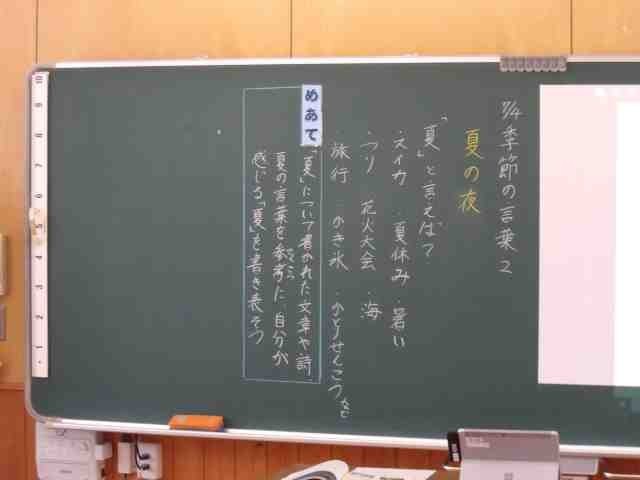 7/4 季節の言葉2
夏の夜
「夏」と言えば?
・スイカ ・夏休み ・暑い
・つり ・花火大会 ・海
・旅行 ・かき氷 ・かとりせんこう など
めあて
「夏」について書かれた文章や詩、
夏の言葉を参考に、自分が
さんこう
感じる「夏」を書き表そう